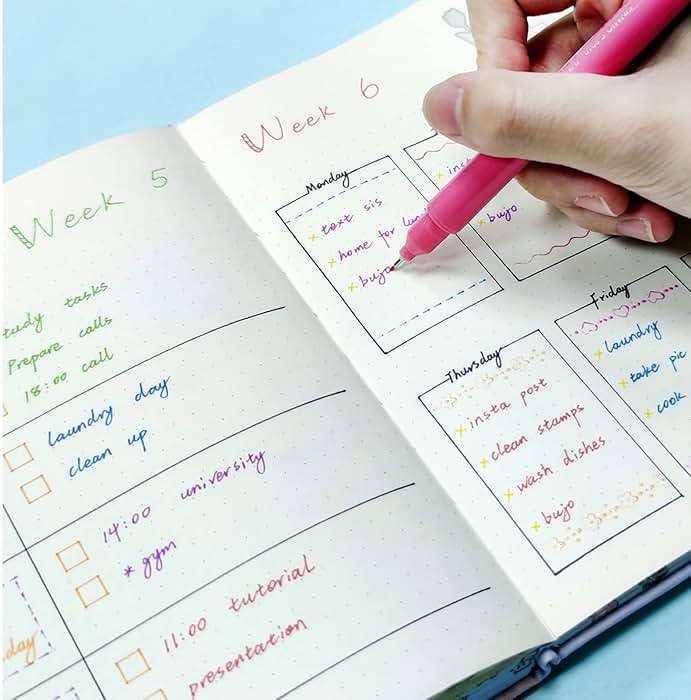 Week 5
tudy tasks
Prepare calls
18:00 call
laundry day
clean up
14:00 university
* gym
11:00 tutorial
presentation
day
Week 6
Monday
× text sis
× home for lun
× bujo
× inst
× bujo
Thursday
× insta post
× clean stamps
× wash dishes
× bujo
Friday
× laundry
× take pic
× cook